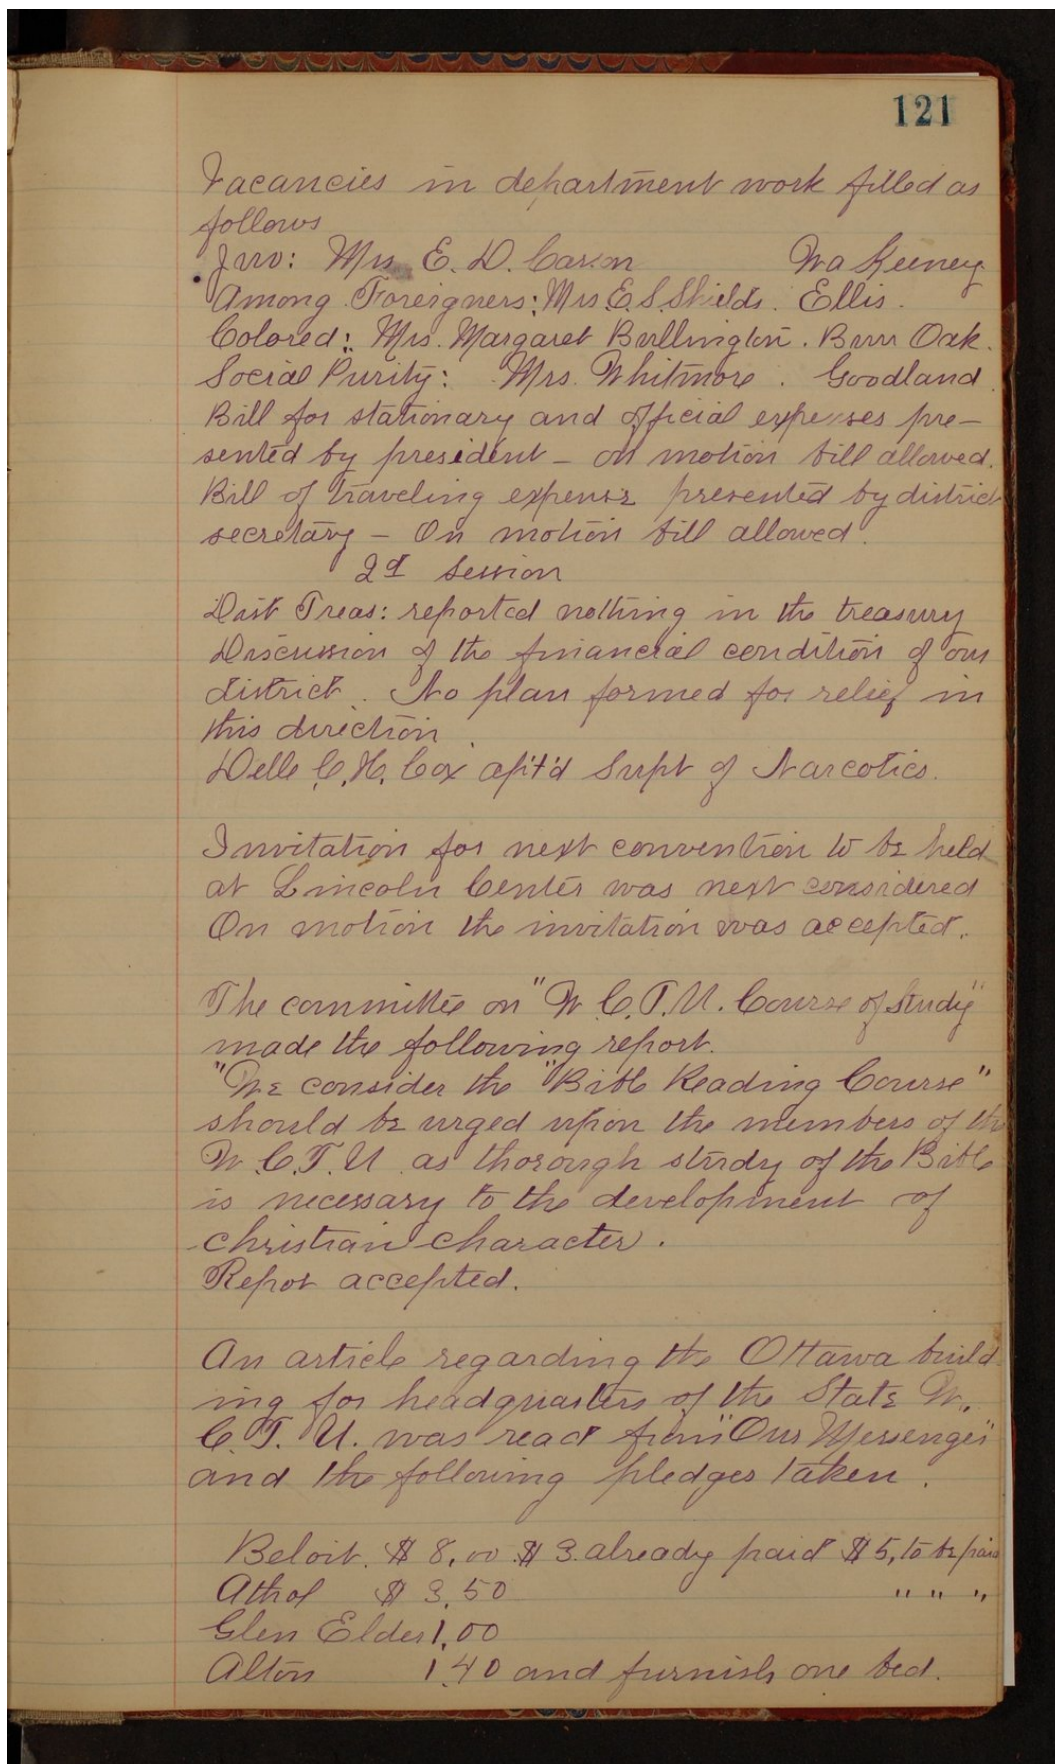 121
Vacancies in department work filled as
follows
Juv: Mrs E. D. Carson Wa Keeney
Among Foreigners: Mrs. E. S. Shields. Ellis.
Colored: Mrs. Margaret Bullington. Burr Oak.
Social Purity: Mrs. Whitmore. Goodland.
Bill for stationary and official expenses pre-
sented by president - on motion bill allowed.
Bill of traveling expense presented by district
secretary - On motion bill allowed.
2d session
Dist Treas: reported nothing in the treasury
Discussion of the financial condition of our
district. No plan formed for relief in
this direction.
Delle C. H. Cox apt'd Supt of Narcotics.
Invitation for next convention to be held
at Lincoln Center was next considered
On motion the invitation was accepted.
The committee on "W. C. T. U. Course of Study"
made the following report.
"We consider the "Bible Reading Course"
should be urged upon the members of the
W. C. T. U. as thorough study of the Bible
is necessary to the development of
christian character.
Repor accepted.
An article regarding the Ottawa build-
ing for headquarters of the State W.
C. T. U. was read from "Our Messenger"
and the following pledges taken.
Beloit. $ 8.00 $ 3. already paid $ 5, to be paid
Athol $ 3.50 " " "
Glen Elder 1.00
Alton 1.40 and furnish one bed.